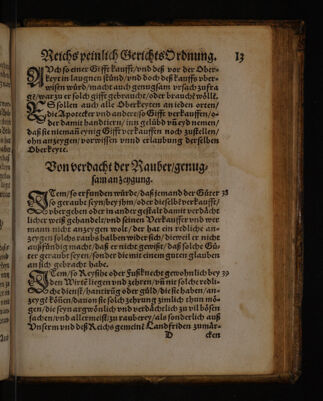 Reichs peinlich Gerichts Ordnung. 13
AUch so einer Gifft kaufft/vnd deß vor der Ober-
keyt in laugnen stünd/vnd doch deß kauffs vber-
wisen würd/macht auch genugsam vrsach zufra
gen/warzu er solch gifft gebraucht/oder brauchē wöllē.
ES sollen auch alle Oberkeyten an jeden orten/
die Apotecker vnd andere so Gifft verkauffen/o-
der damit handtiern/inn gelübd vn eyd nemen/
daß sie niemand eynig Gifft verkauffen noch zustellen/
ohn anzeygen/vorwissen vnnd erlaubung derselben
Oberkeyt.
Von verdacht der Rauber/genug-
sam anzeygung.
ITem/so erfunden würde/daß jemand der Güter 38
so geraubt seyn/bey jhm/oder dieselbē verkaufft/
vbergeben oder in ander gestalt damit verdächt
licher weiß gehandelt/vnd seinen Verkauffer vnd wer
mann nicht anzeygen wolt/der hat ein redliche an-
zeygen solchs raubs halben wider sich/dieweil er nicht
außfündig macht/daß er nicht gewißt/daß solche Gü-
ter geraubt seyen/sonder die mit einem guten glauben
an sich gebracht habe.
ITem/so Reysige oder Fußknecht gewohnlich bey 39
den Wirtē liegen vnd zehren/vn nit solche redli-
che dienst/hantirüg oder güld/die sie haben/an-
zeygē könen/danon sie solch zehrung zimlich thun mö-
gen/die seyn argwönig vnd verdächtlich zu vil bösen
sachen/vnd allermeist/zu rauberey/als sonderlich auß
Vnserm vnd deß Reichs gemeinē Landfriden zumär-
D cken